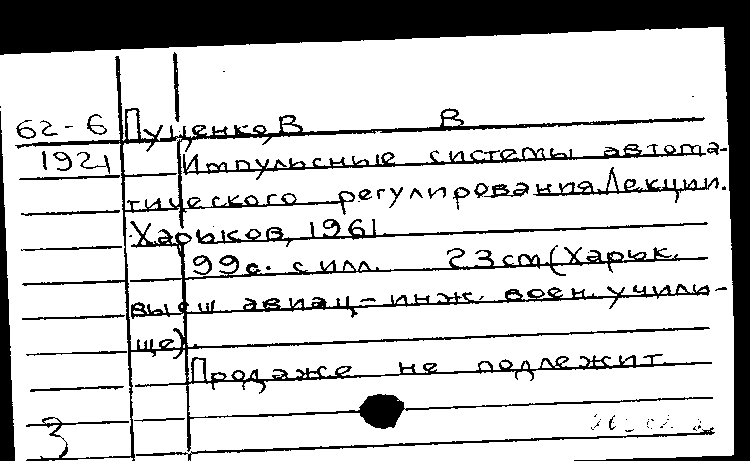 62-6 Луценко, В В
1921 Импульсные системы автома-
тического регулирования. Лекции.
Харьков, 1961.
99с. с илл. 23см (Харьк.
высш авиац-инж. воен. учили-
ще).
Продаже не подлежит
3